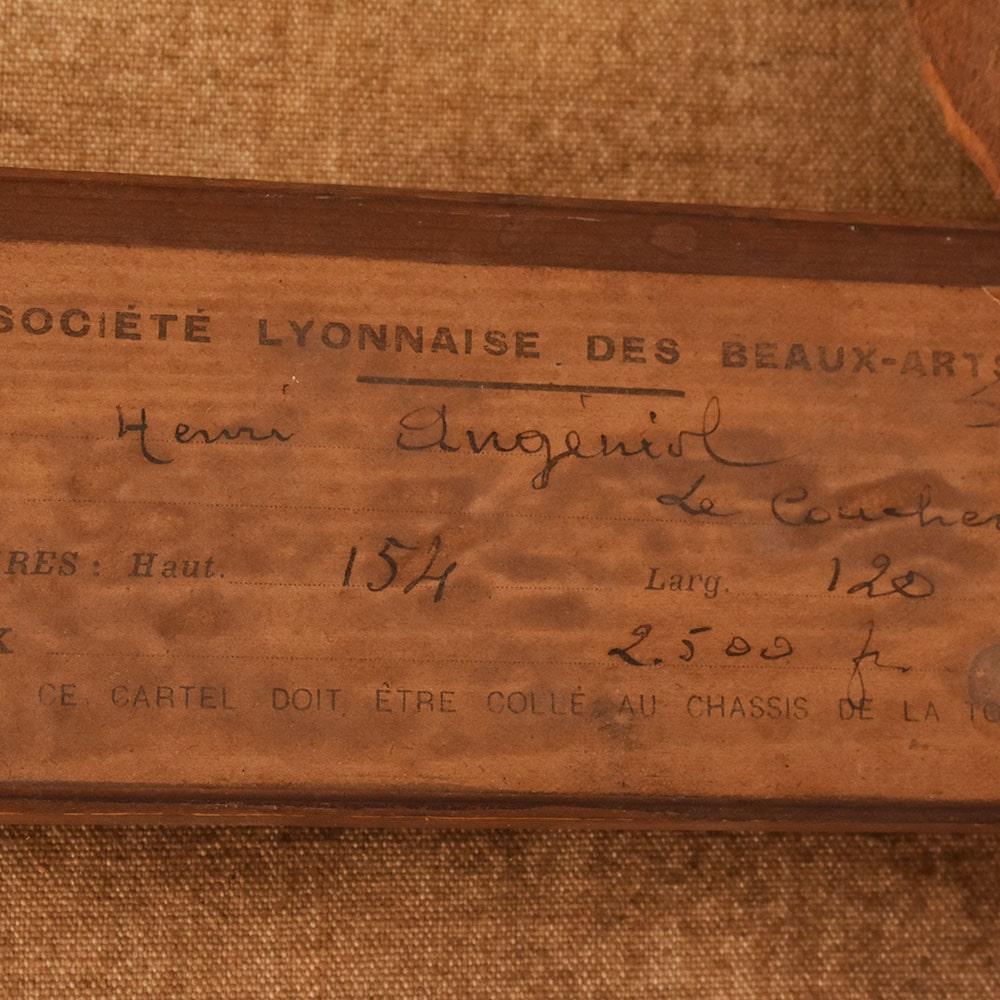 SOCIÉTÉ LYONNAISE DES BEAUX-ARTS
Henri Angéniol
Le Coucher
RES : Haut. 154 Larg. 120
X 2.500 fr.
CE CARTEL DOIT ÊTRE COLLÉ AU CHASSIS DE LA TO